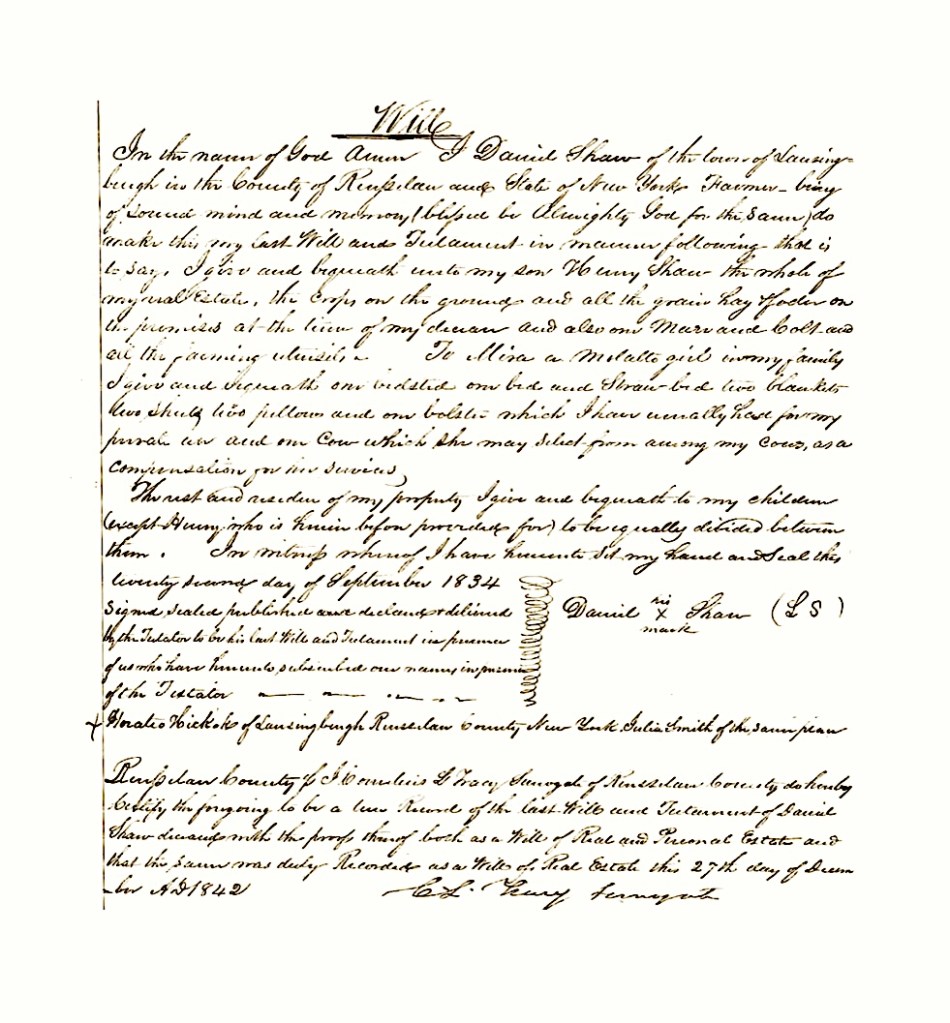 Will
In the name of God Amen I Daniel Shaw of the town of Lansing-
burgh in the County of Rensselaer and State of New York Farmer - being
of sound mind and memory (blessed be Almighty God for the same) do
make this my last Will and Testament in manner following that is
to say, I give and bequeath unto my son Henry Shaw the whole of
my real Estate, the crops on the ground and all the grain hay & foder on
the premises at the time of my decease and also one Mare and Colt and
all the farming utensils. To Mira a Molatto girl in my family
I give and bequeath one bedsted one bed and Straw bed two blankets
two sheets two pillows and one bolster which I have usually had for my
private use and one Cow which she may select from among my cows, as a
compensation for her services
The rest and residue of my property I give and bequeath to my children
(except Henry who is herein before provided for) to be equally divided between
them. In witness whereof I have hereunto set my hand and Seal this
twenty second day of September 1834
Signed sealed published and declared & delivered
by the Testator to be his last Will and Testament in presence
of us who have hereunto subscribed our names in presence
of the Testator
Daniel his X mark Shaw (L S)
X Horatio Hickok of Lansingburgh Rensselaer County New York Julia Smith of the same place
Rensselaer County ss I Cornelius L Tracy Surrogate of Rensselaer County do hereby
Certify the foregoing to be a true Record of the last Will and Testament of Daniel
Shaw deceased with the proofs thereof both as a Will of Real and Personal Estate and
that the same was duly Recorded as a Will of Real Estate this 27th day of Decem
-ber AD 1842 C L Tracy Surrogate